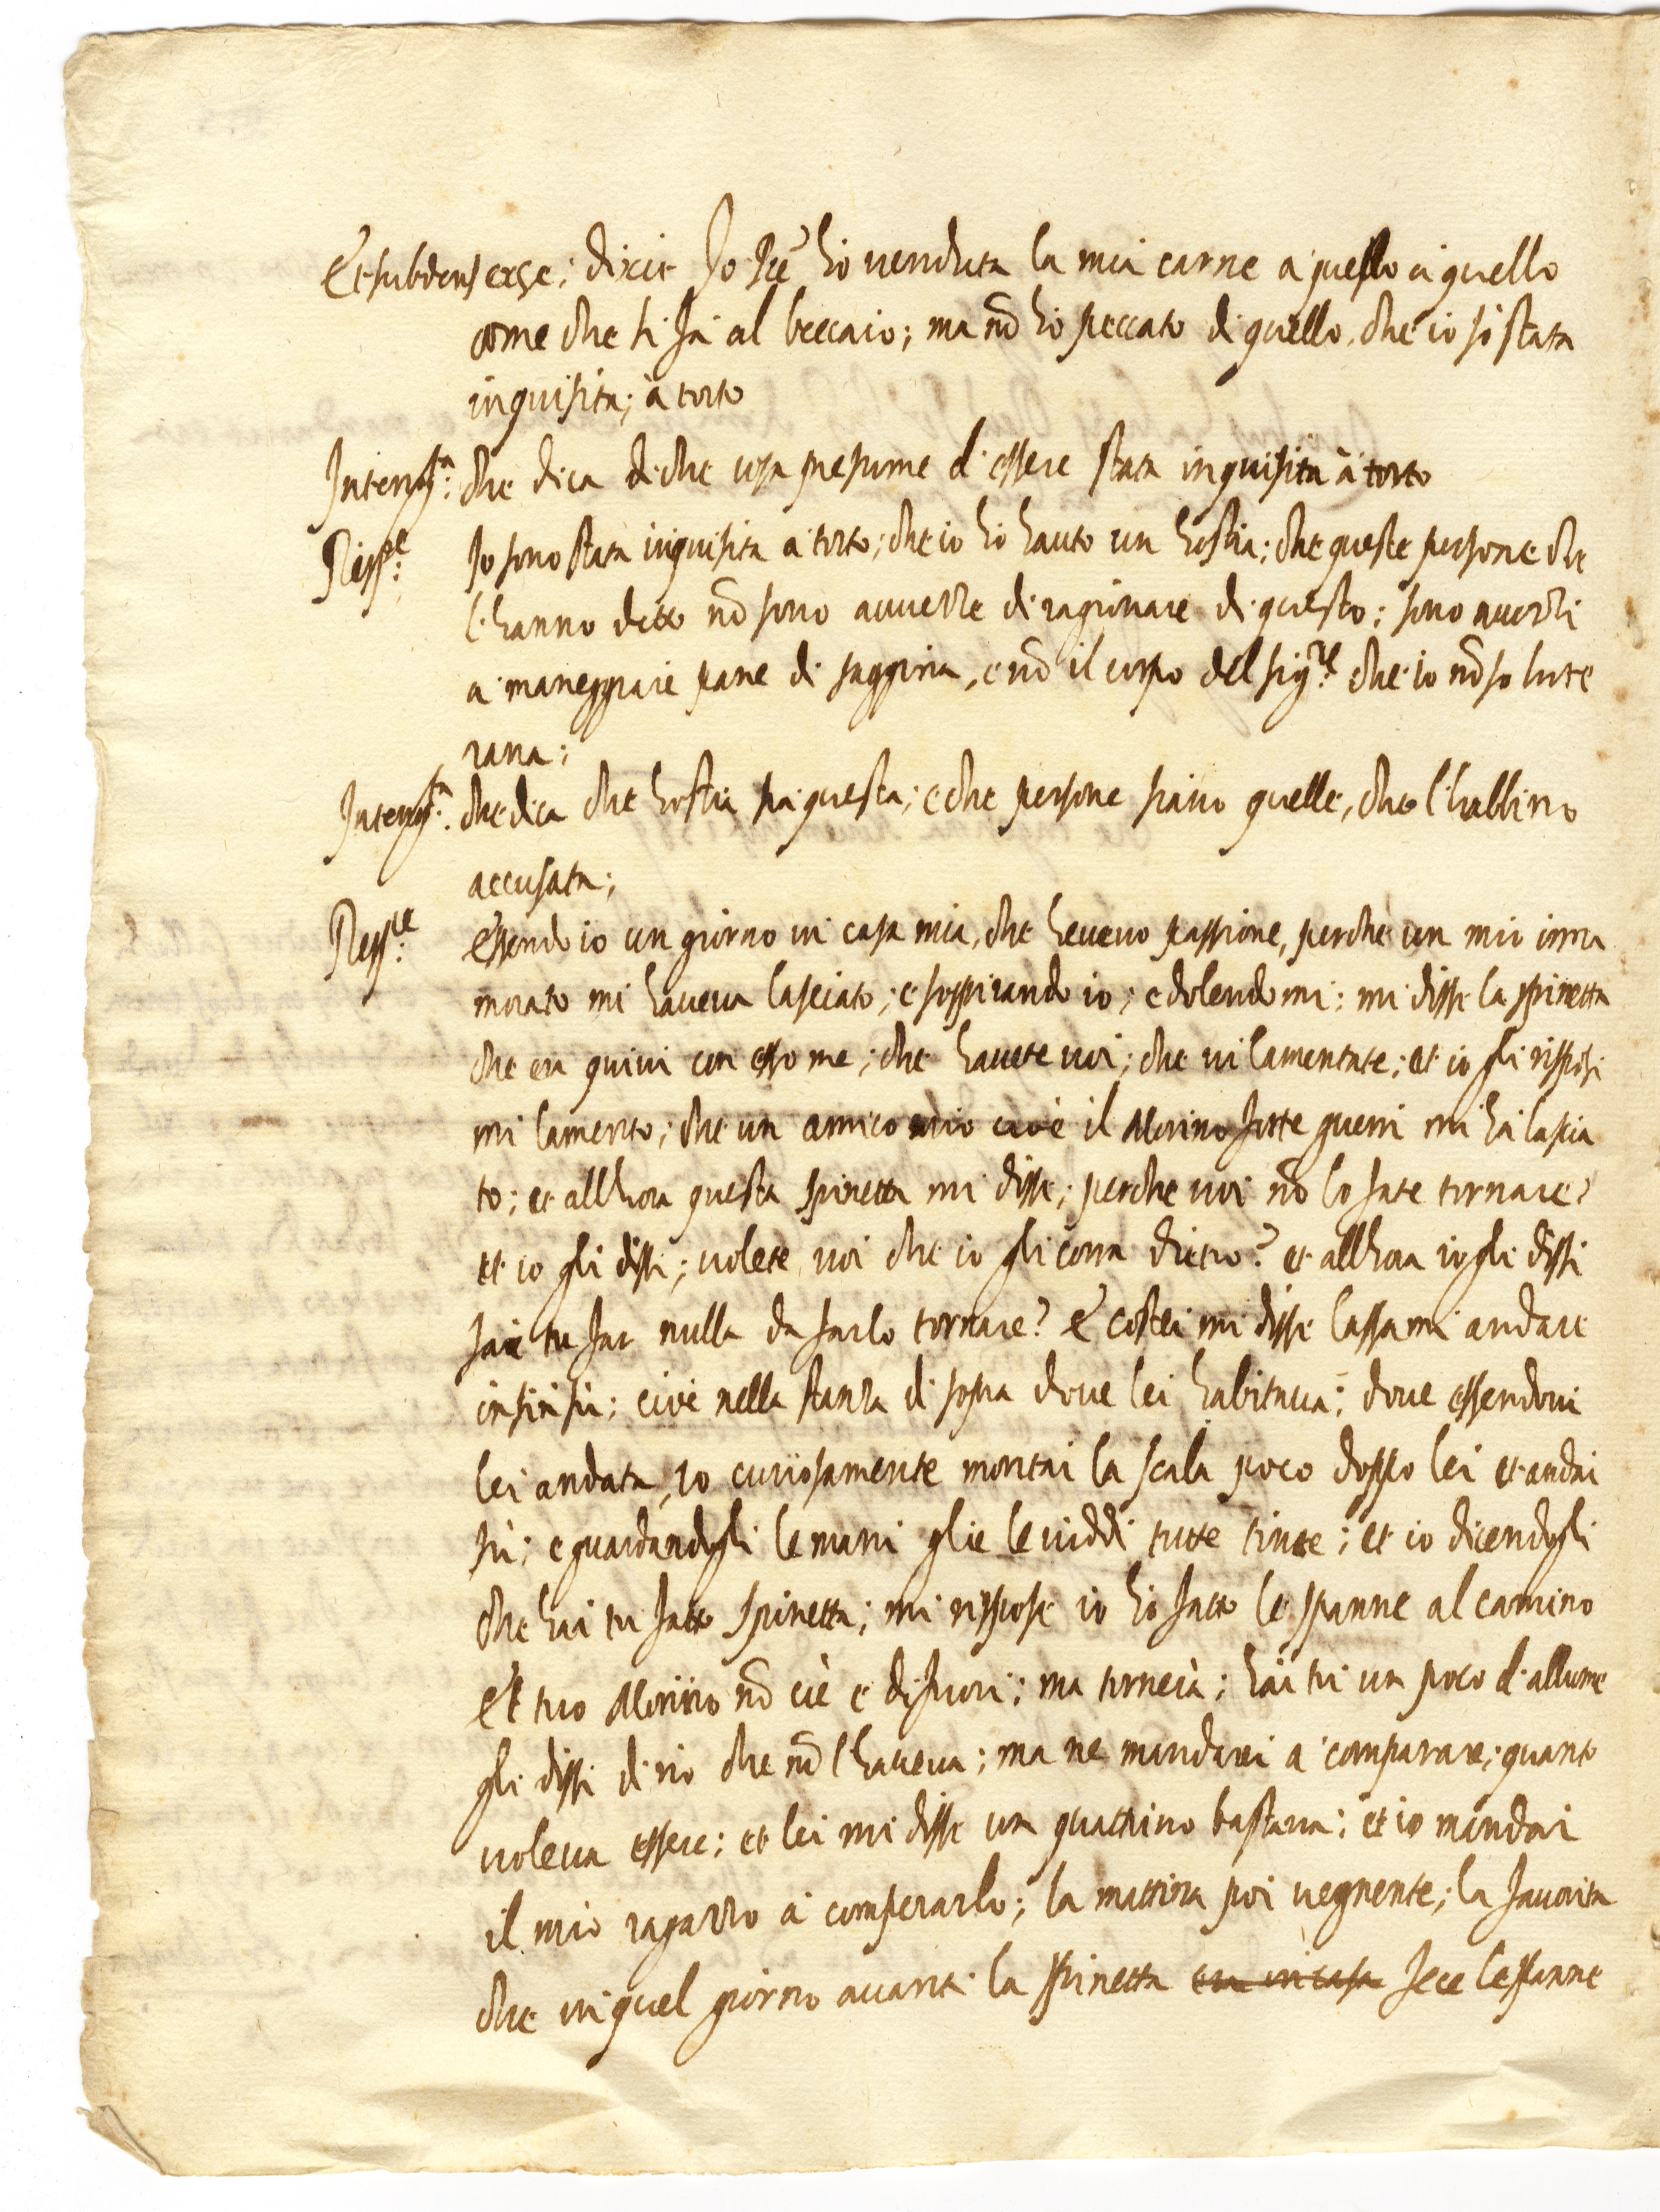 Et subdens ex se: dixit Io se ho venduta la mia carne a questo a quello
come che si fa al beccaio; ma nō ho peccato di quello, che io so stata
inquisita; à torto
Interrog.ta che dica di che cosa presume d'essere stata inquisita à torto
Resp.te Io sono stata inquisita a torto; che io ho hauto un hostia; che queste persone che
l'hanno detto nō sono auuezze di ragionare di questo: sono auezzi
a maneggiare pane di saggina, e nō il corpo del sig.re che io nō so lute
rana:
Interrog.ta che dica che hostia sia questa; e che persone siano quelle, che l'habbino
accusata;
Resp.te Essendo io un giorno in casa mia, che haueuo passione, perchè un mio inna
morato mi haueua lasciato; e sospirando io; e dolendomi: mi disse la spinetta
che era quiui con esso me; che hauete uoi; che ui lamentate; et io gli risposi
mi lamento; che un amico mio cioè il Morino fatte guerri mi hà lascia
to; et allhora questa spinetta mi disse; perche uoi nō lo fate tornare?
et io gli dissi; uolete uoi che io gli corra dietro? et allhora io gli dissi
sai tu far nulla da farlo tornare? e costei mi disse lassami andare
insin sù; cioè nella stanza di sopra doue lei habitaua; doue essendoui
lei andata, io curiosamente montai la scala poco doppo lei et andai
sù; e guardandogli le mani glie le uiddi tutte tinte; et io dicendogli
che hai tu fatto spinetta; mi rispose io hò fatto le spanne al camino
e'l tuo Morino nō ciè e di fuori; ma tornerà; hai tu un poco d'allume
gli dissi di nò che nō l'haueua; ma ne mandarei a comparare; quanto
uoleua essere; et lei mi disse un quattrino bastaua; et io mandai
il mio ragazzo à comperarlo; la mattina poi uegnente; la fauorita
che in quel giorno auanti la spinetta era in casa fece le spanne